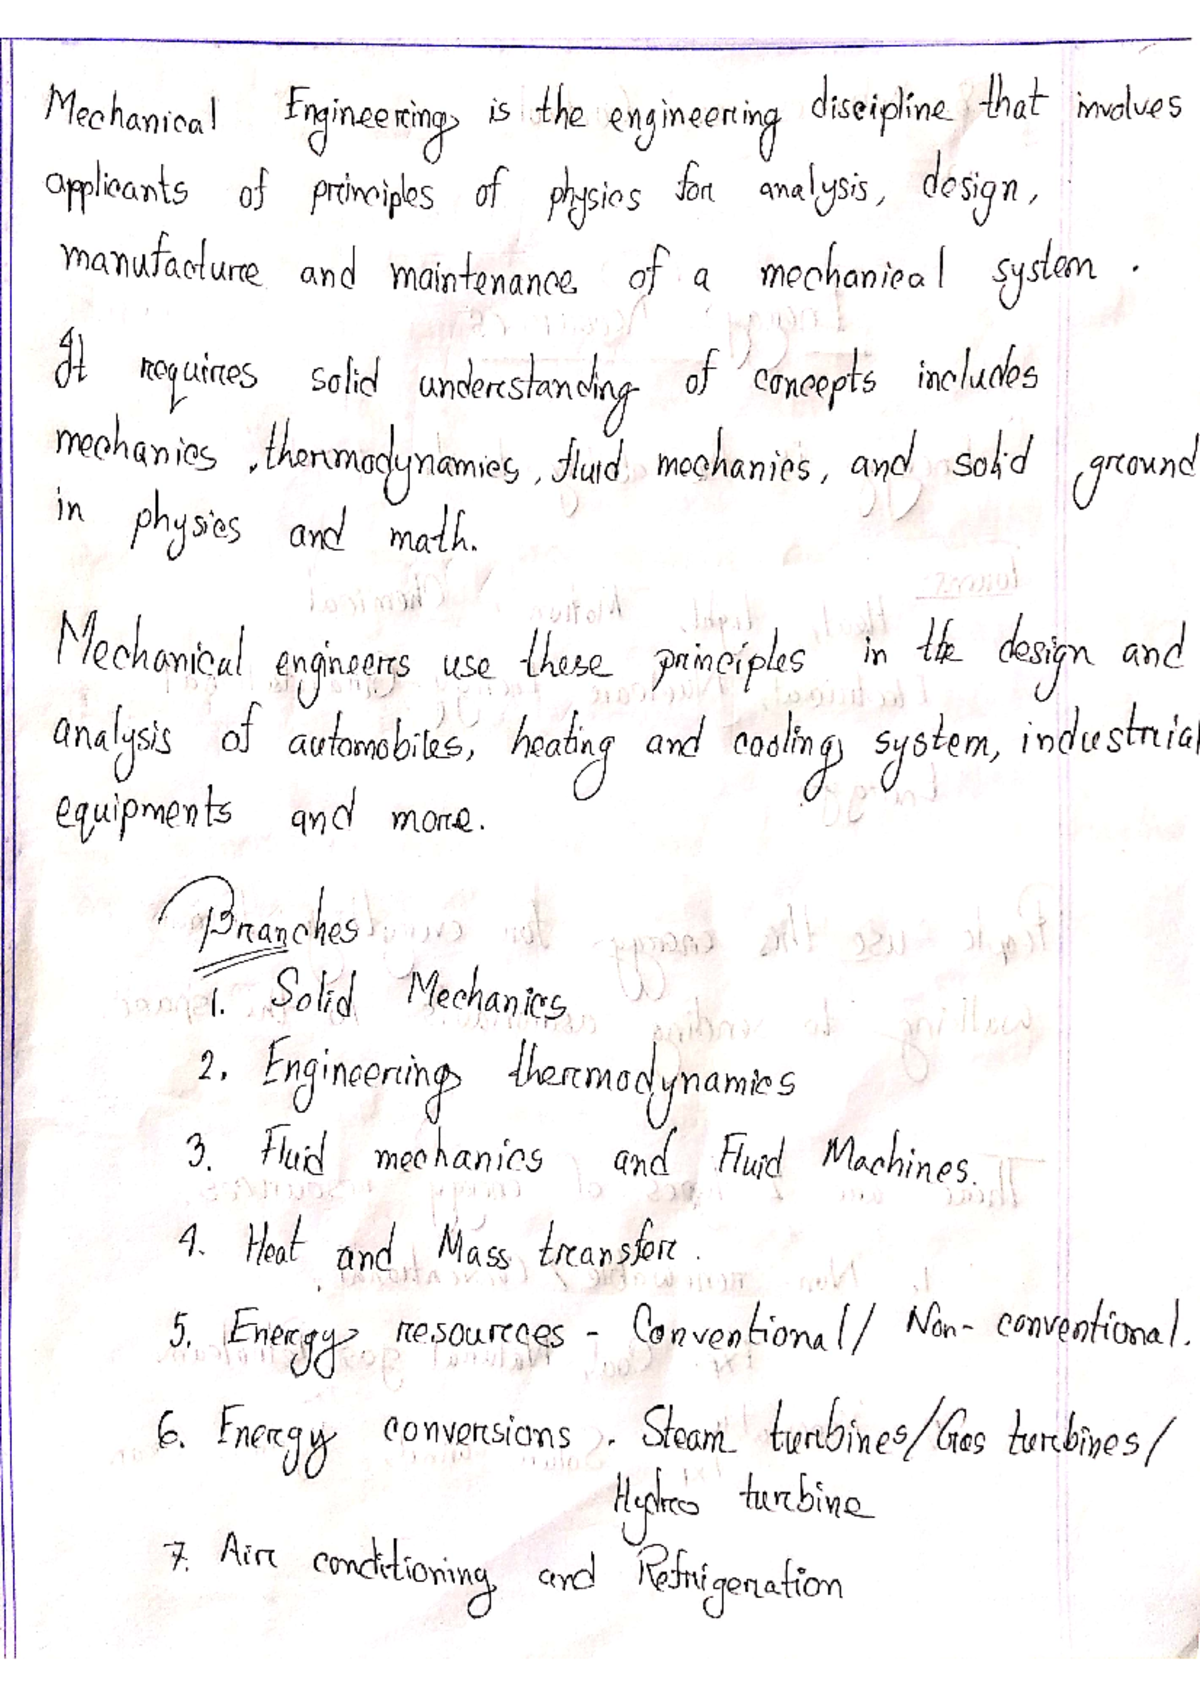 Mechanical Engineering is the engineering discipline that involves
applicants of principles of physics for analysis, design,
manufacture and maintenance of a mechanical system.
It requires solid understanding of concepts includes
mechanics, thermodynamics, fluid mechanics, and solid ground
in physics and math.
Mechanical engineers use these principles in the design and
analysis of automobiles, heating and cooling system, industrial
equipments and more.
Branches
1. Solid Mechanics
2. Engineering thermodynamics
3. Fluid mechanics and Fluid Machines.
4. Heat and Mass transfer.
5. Energy resources - Conventional/ Non-conventional.
6. Energy conversions - Steam turbines/Gas turbines/
Hydro turbine
7. Air conditioning and Refrigeration